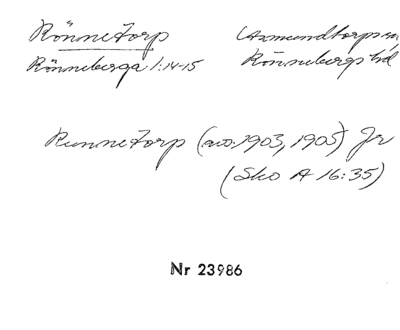 Rönnetorp
Rönneberga 1:14-15
Asmundtorps sn
Rönnebergs hd
Runnetorp (avs. 1903, 1905) Jr
(Sko A 16:35)
Nr 23986